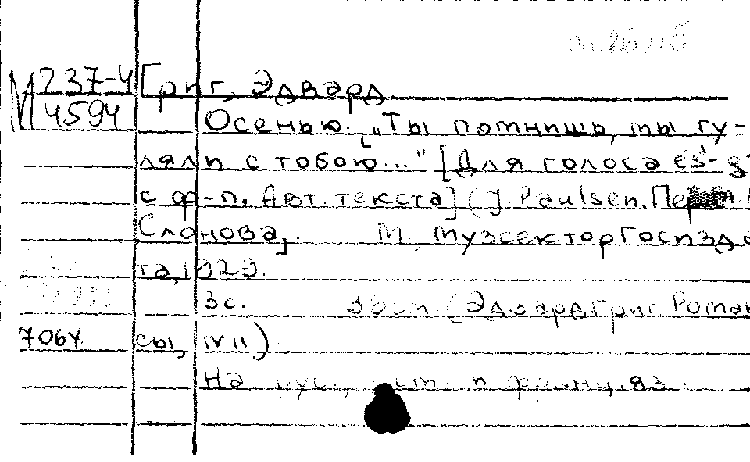 М 237-4 Григ, Эдвард.
4594 Осенью. „Ты помнишь, мы гу-
ляли с тобою..." [Для голоса es¹-g²
с ф-п. Авт. текста] (J. Paulsen. Пер.
Слонова]. М. Музсектор Госизда
та, 1923.
3с. (Эдвард Григ. Роман
7064 сы, № 11)
На яз.